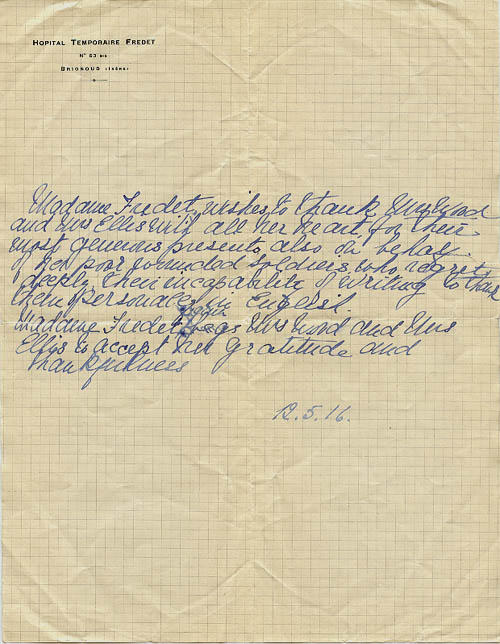 HOPITAL TEMPORAIRE FREDET
N° 53 BIS
BRIGNOUD (ISÈRE)
Madame Fredet, wishes, to thank Mrs Wood
and Mrs Ellis with all her heart, for their
most generous presents, also on behalf
of her poor wounded soldiers, who regret
deeply their incapability of writing to thank
them personally in English.
again
Madame Fredet begs Mrs Wood and Mrs
Ellis to accept her gratitude and
thankfulness
12.5.16.